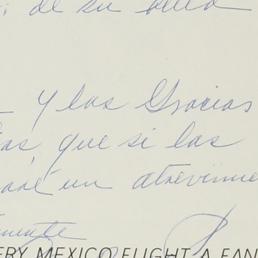 de su bella
y las Gracias
que si las
un atrevimie
ERY MEXICO FLIGHT A FAN